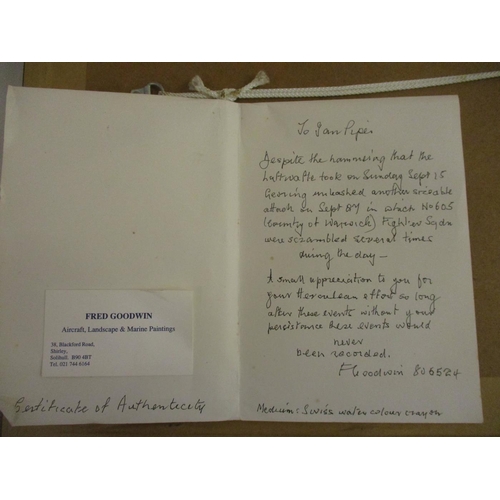 FRED GOODWIN
Aircraft, Landscape & Marine Paintings
38, Blackford Road,
Shirley,
Solihull. B90 4BT
Tel. 021 744 6164
Certificate of Authenticity
To Ian Piper
Despite the hammering that the
Luftwaffe took on Sunday Sept 15
Goering unleashed another sizeable
attack on Sept 27 in which No 605
(County of Warwick) Fighter Sqdn
were scrambled several times
during the day —
A small appreciation to you for
your Herculean effort so long
after these events without your
persistance these events would
never
been recorded.
F Goodwin
Medium: Swiss water colour crayon